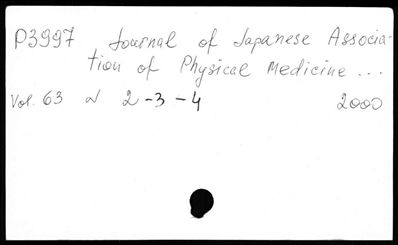 P3997 Journal of Japanese Associa-
tion of Physical Medicine ...
Vol. 63 N 2-3-4 2000